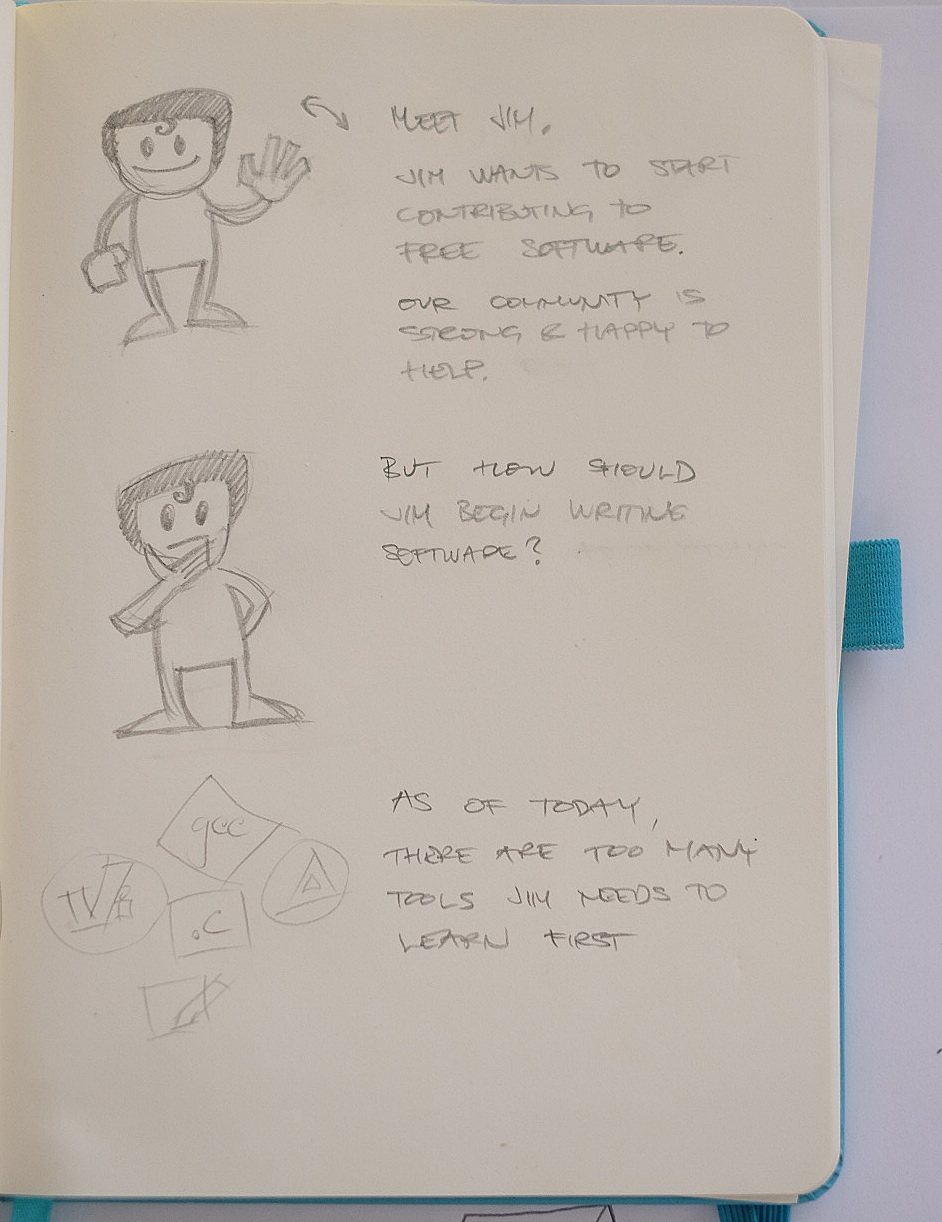 MEET JIM.
JIM WANTS TO START
CONTRIBUTING TO
FREE SOFTWARE.
OUR COMMUNITY IS
STRONG & HAPPY TO
HELP.
BUT HOW SHOULD
JIM BEGIN WRITING
SOFTWARE?
AS OF TODAY,
THERE ARE TOO MANY
TOOLS JIM NEEDS TO
LEARN FIRST
gcc
.C